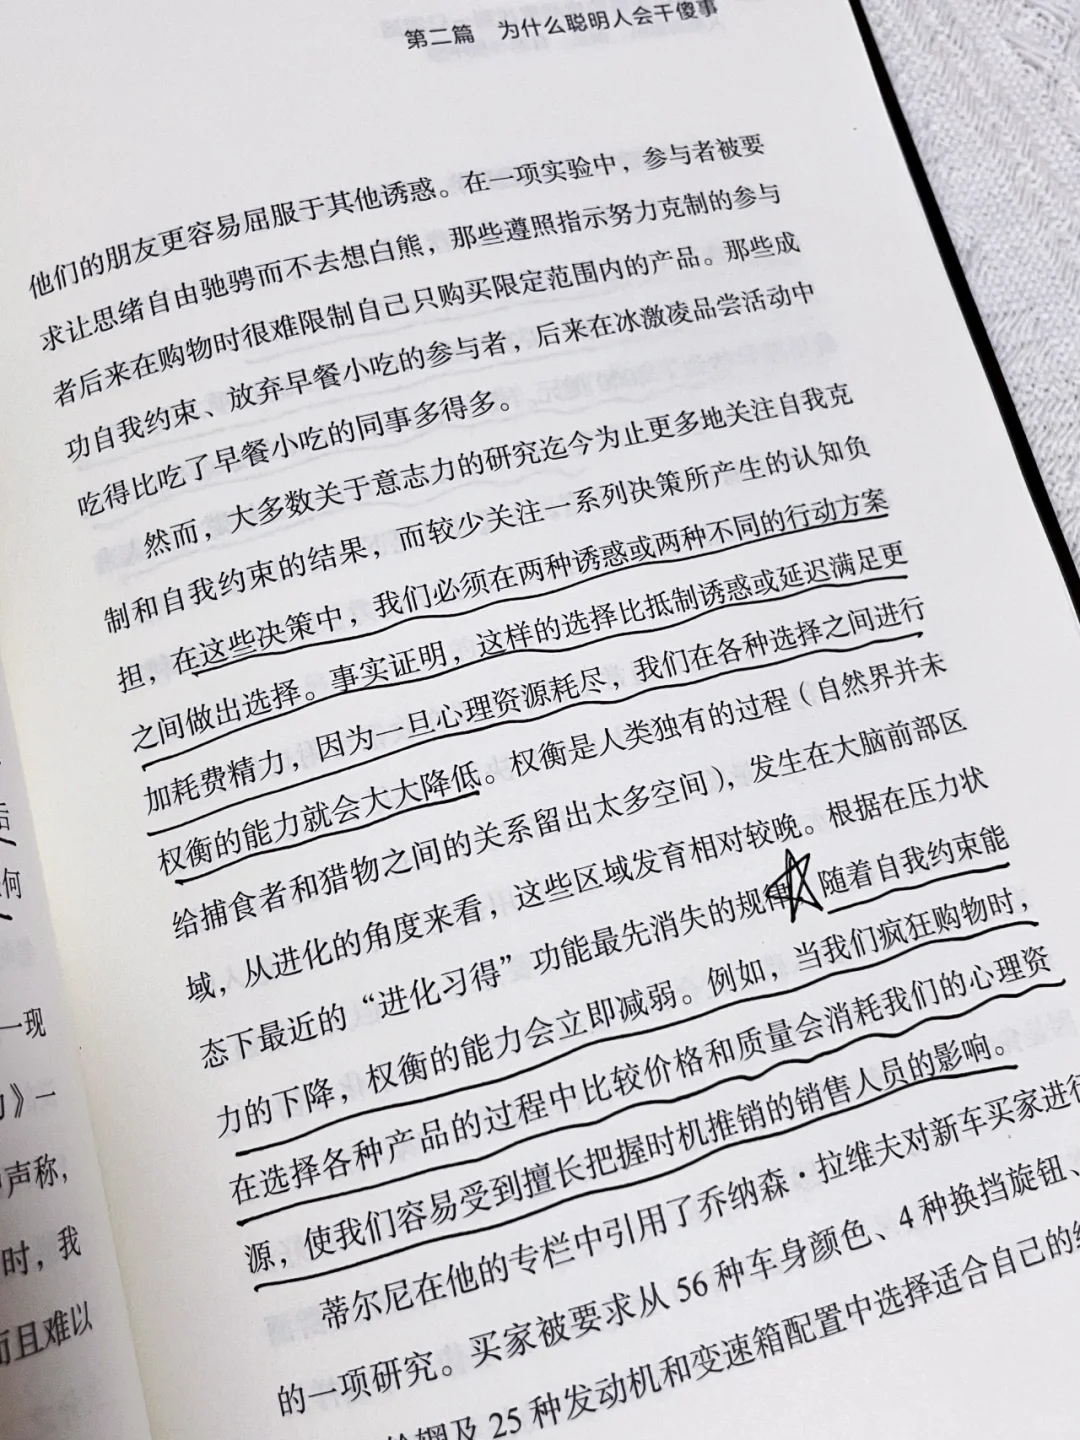 第二篇 为什么聪明人会干傻事
他们的朋友更容易屈服于其他诱惑。在一项实验中，参与者被要
求让思绪自由驰骋而不去想白熊，那些遵照指示努力克制的参与
者后来在购物时很难限制自己只购买限定范围内的产品。那些成
功自我约束、放弃早餐小吃的参与者，后来在冰激凌品尝活动中
吃得比吃了早餐小吃的同事多得多。
然而，大多数关于意志力的研究迄今为止更多地关注自我克
制和自我约束的结果，而较少关注一系列决策所产生的认知负
担，在这些决策中，我们必须在两种诱惑或两种不同的行动方案
之间做出选择。事实证明，这样的选择比抵制诱惑或延迟满足更
加耗费精力，因为一旦心理资源耗尽，我们在各种选择之间进行
权衡的能力就会大大降低。权衡是人类独有的过程（自然界并未
给捕食者和猎物之间的关系留出太多空间），发生在大脑前部区
域，从进化的角度来看，这些区域发育相对较晚。根据在压力状
态下最近的“进化习得”功能最先消失的规律，随着自我约束能
力的下降，权衡的能力会立即减弱。例如，当我们疯狂购物时，
在选择各种产品的过程中比较价格和质量会消耗我们的心理资
源，使我们容易受到擅长把握时机推销的销售人员的影响。
蒂尔尼在他的专栏中引用了乔纳森·拉维夫对新车买家进行
的一项研究。买家被要求从 56 种车身颜色、4 种换挡旋钮、
及 25 种发动机和变速箱配置中选择适合自己的
何
一现
》一
声称，
时，我
而且难以